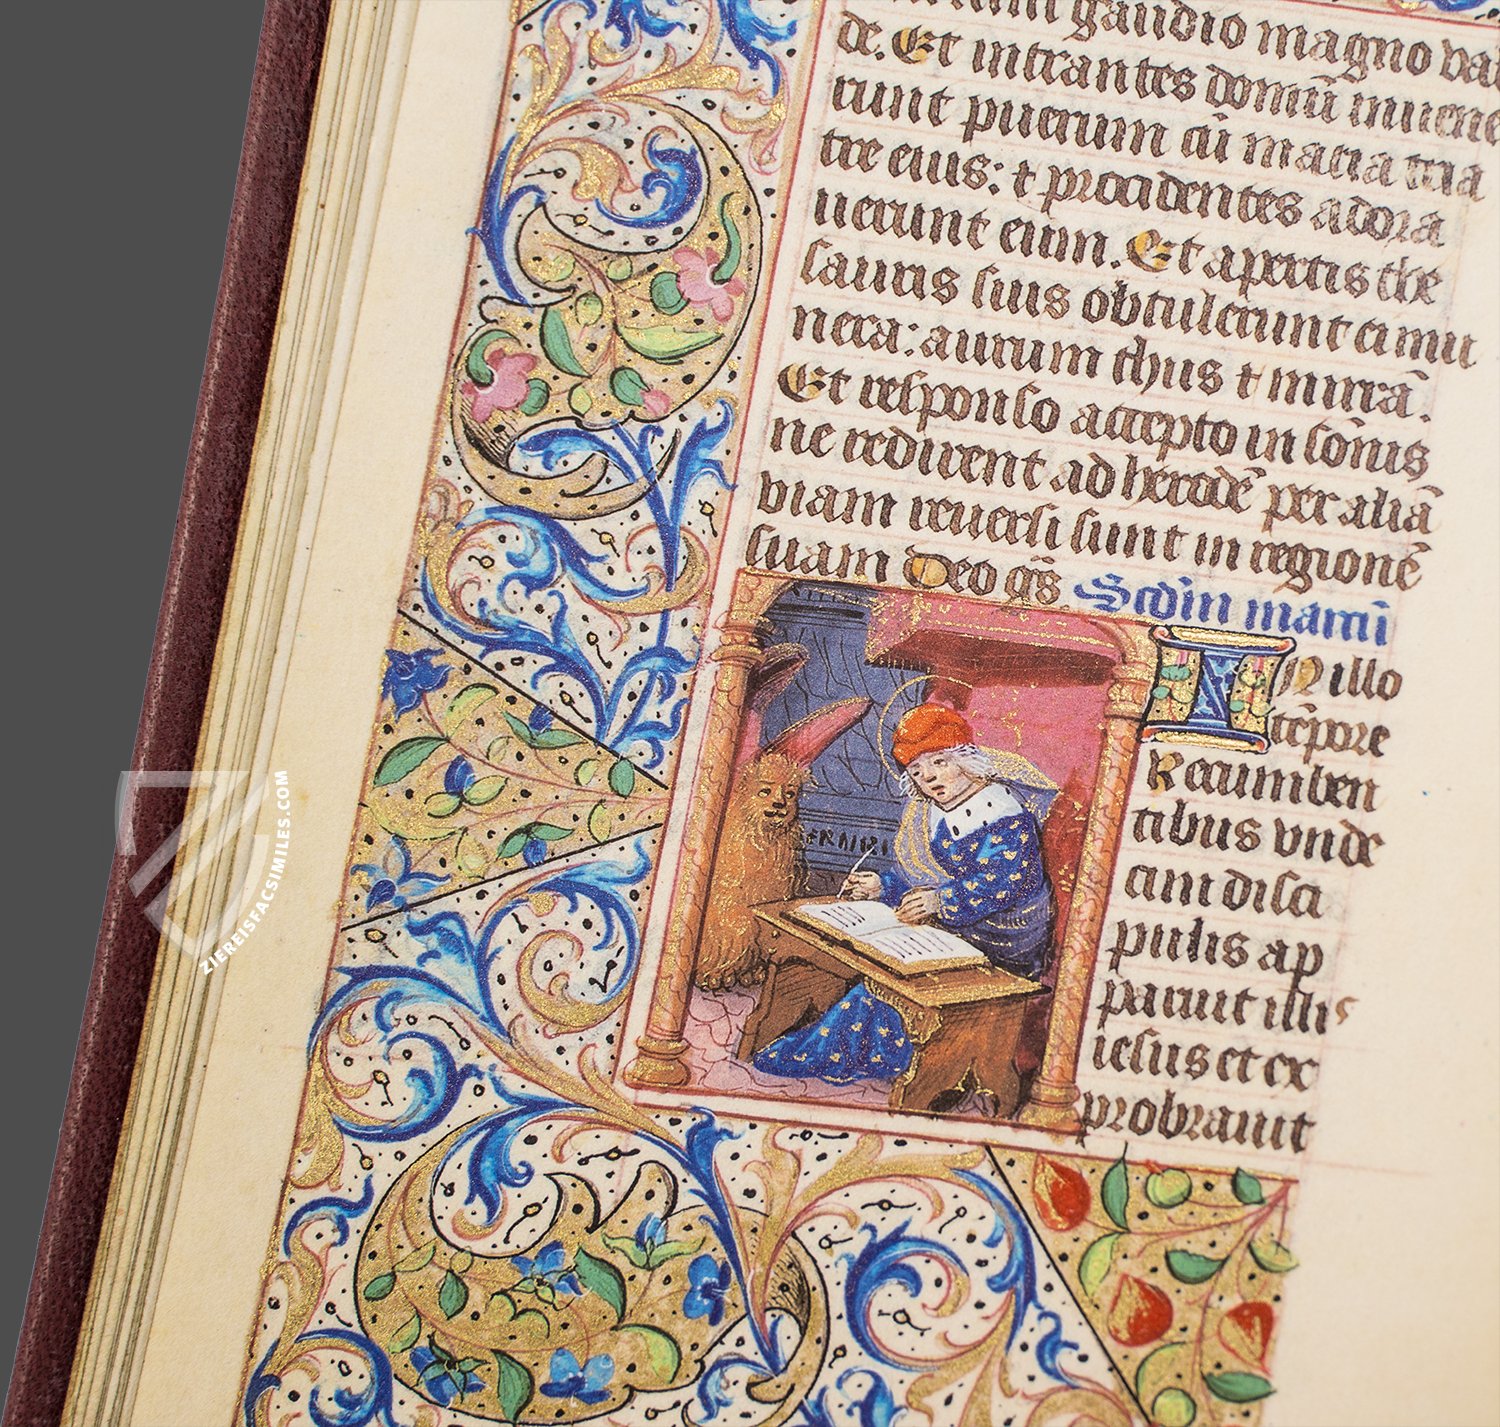 gaudio magno val
de. Et intrantes domū inuene
runt puerum cū maria ma
tre eius: ⁊ procidentes adora
uerunt eum. Et apertis the
sauris suis obtulerunt ei mu
nera: aurum thus ⁊ mirrā.
Et responso accepto in sōnis
ne redirent ad herodē per aliā
viam reuersi sunt in regionē
suam Deo grs̄ Scdm̄ marcū
IN illo
tēpore
Recumben
tibus vnde
cim disci
pulis ap
paruit illis
iesus et ex
probrauit
ZIEREISFACSIMILES.COM